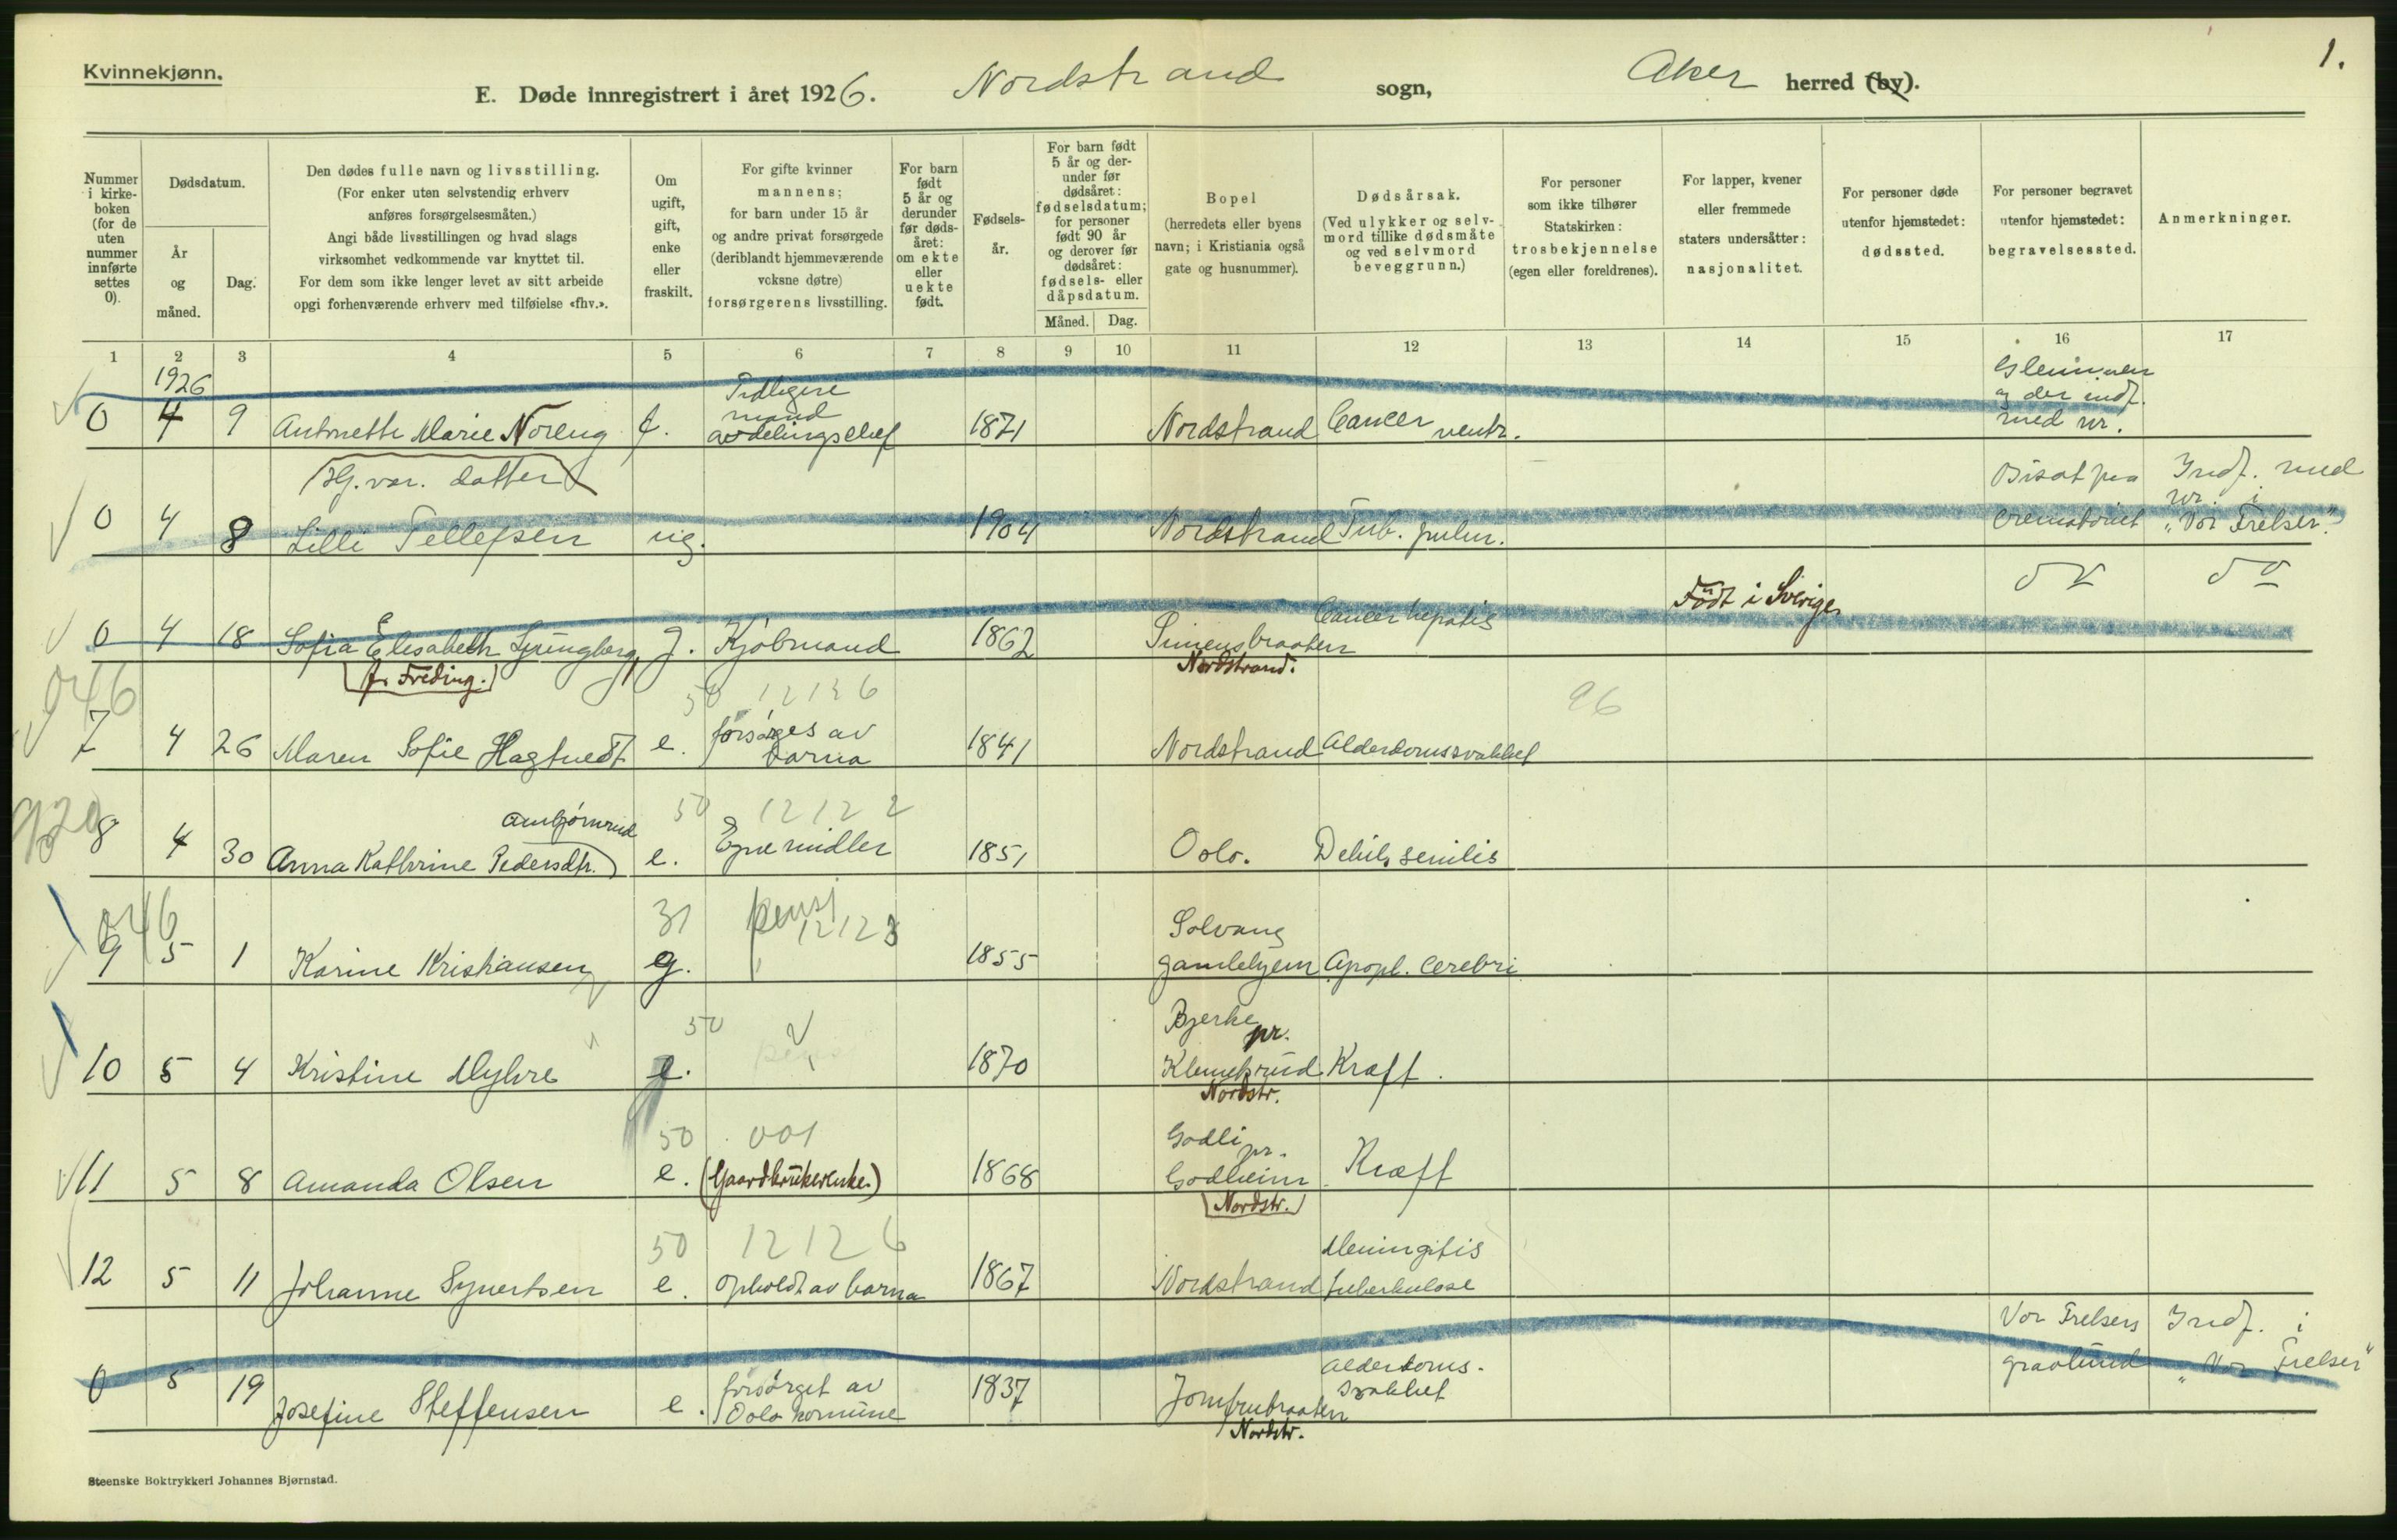 Kvinnekjønn.
1.
E. Døde innregistrert i året 1926. Nordstrand sogn, Aker herred (by).
Nummer i kirkeboken (for de uten nummer innførte settes 0).
Dødsdatum.
År og måned.
Dag.
Den dødes fulle navn og livsstilling.
(For enker uten selvstendig erhverv
anføres forsørgelsesmåten.)
Angi både livsstillingen og hvad slags
virksomhet vedkommende var knyttet til.
For dem som ikke lenger levet av sitt arbeide
opgi forhenværende erhverv med tilføielse «fhv.».
Om
ugift,
gift,
enke
eller
fraskilt.
For gifte kvinner
mannens;
for barn under 15 år
og andre privat forsørgede
(deriblandt hjemmeværende
voksne døtre)
forsørgerens livsstilling.
For barn
født
5 år og
derunder
før døds-
året:
om ekte
eller
uekte
født.
Fødsels-
år.
For barn født
5 år og der-
under før
dødsåret:
fødselsdatum;
for personer
født 90 år
og derover før
dødsåret:
fødsels- eller
dåpsdatum.
Måned. Dag.
Bopel
(herredets eller byens
navn; i Kristiania også
gate og husnummer).
Dødsårsak.
(Ved ulykker og selv-
mord tillike dødsmåte
og ved selvmord
beveggrunn.)
For personer
som ikke tilhører
Statskirken:
trosbekjennelse
(egen eller foreldrenes).
For lapper, kvener
eller fremmede
staters undersåtter:
nasjonalitet.
For personer døde
utenfor hjemstedet:
dødssted.
For personer begravet
utenfor hjemstedet:
begravelsessted.
Anmerkninger.
1 2 3 4 5 6 7 8 9 10 11 12 13 14 15 16 17
1926
0 4 9 Antonette Marie Noreng f. Tidligere mand avdelingschef 1871 Nordstrand Cancer ventr. Glemmen og der indf. med nr.
Hj.vær. datter
0 4 8 Lilli Tellefsen ug. 1904 Nordstrand Tub. pulm. Bisat paa crematoriet Indf. med nr. i "Vor Frelser".
0 4 18 Sofia Elisabeth Ljungberg, g. Kjøbmand 1862 Simensbraaten Cancer hepatis Født i Sverige
f. Freding. Nordstrand.
046 50 12126 96
7 4 26 Maren Sofie Hagtvedt e. forsørges av barna 1841 Nordstrand Alderdomssvakhet
920 50 12122
8 4 30 Anna Kathrine Pedersdtr. e. Egne midler 1851 Oslo. Debil. senilis
046 31 pensj 12123
9 5 1 Karine Kristiansen g. 1855 Solvang gamlehjem Apopl. cerebri
50
10 5 4 Kristine Myhre e. 1870 Bjerke pr. Klemetsrud Kræft.
Nordstr.
50 001
11 5 8 Amanda Olsen e. (Gaardbrukerenke.) 1868 Godli pr. Godheim Kræft
Nordstr.
50 12126
12 5 11 Johanne Syvertsen e. Opholdt av barna 1867 Nordstrand Meningitis tuberkulose
0 5 19 Josefine Steffensen e. forsørget av Oslo komune 1837 Jomfrubraaten Alderdoms-svakhet Vor Frelsers gravlund Indf. i "Vor Frelser"
Nordstr.
Steenske Boktrykkeri Johannes Bjørnstad.